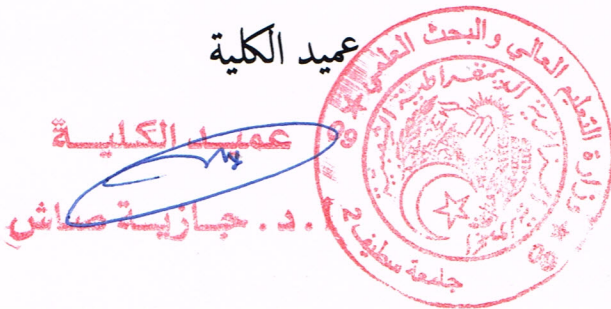 عميد الكلية
عميد الكلية
أ.د. جازية صاش
وزارة التعليم العالي والبحث العلمي
الجمهورية الجزائرية الديمقراطية الشعبية
جامعة سطيف 2
09
09